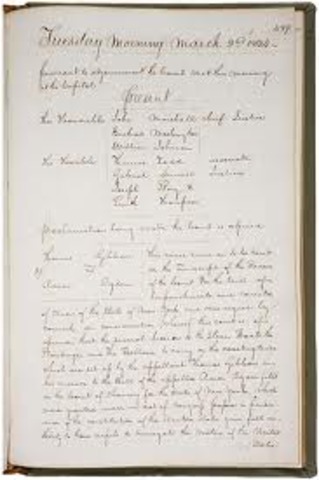 Tuesday Morning March 2nd 1824
Pursuant to adjournment the Court met this morning
at the Capitol
Present
The Honorable John Marshall Chief Justice
Bushrod Washington
William Johnson
The Honorable Thomas Todd Associate
Gabriel Duvall Justices
Joseph Story &
Smith Thompson
Proclamation being made the Court is opened
Thomas Gibbons This cause came on to be heard
vs on the Transcript of the Record
Aaron Ogden of the Court for the trial of
Impeachments and correction
of Errors of the State of New York and was argued by
counsel, on consideration whereof this court is of
opinion that the several licenses to the Steam Boats the
Stoudinger and the Bellona to carry on the coasting trade
which are set up by the appellant Thomas Gibbons in
his answer to the Bill of the appellee Aaron Ogden filed
in the Court of Chancery for the State of New York, which
were granted under an act of Congress, passed in pursu-
ance of the constitution of the United States gave full au-
thority to those vessels to navigate the waters of the United
States